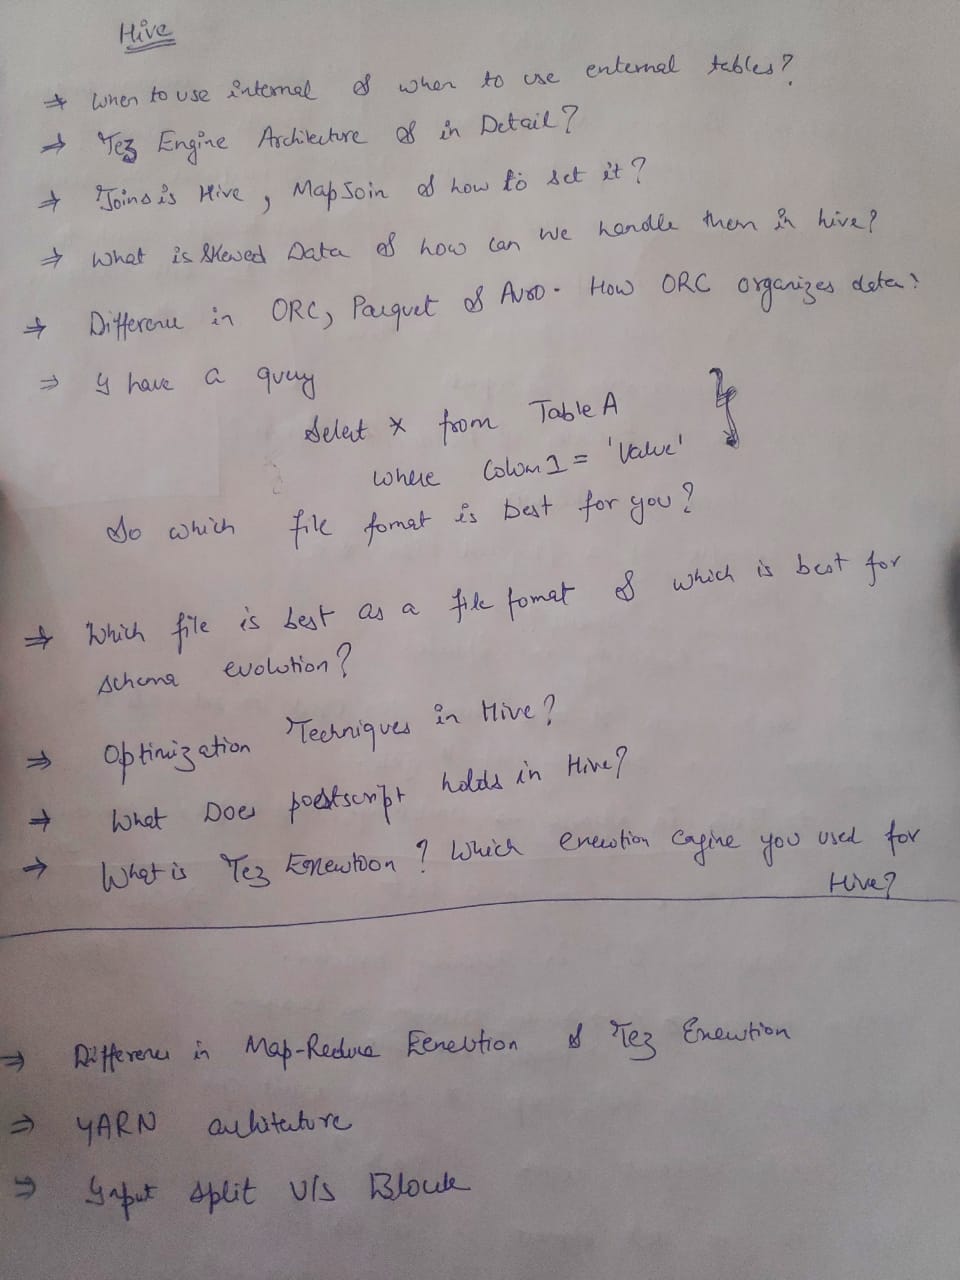 Hive
⇒ When to use internal & when to use external tables?
⇒ Tez Engine Architecture & in Detail?
⇒ Joins is Hive, MapJoin & how to set it?
⇒ What is Skewed Data & how can we handle them in hive?
⇒ Difference in ORC, Parquet & Avro. How ORC organizes data?
⇒ I have a query
Select * from Table A
where Colum 1 = 'Value'
So which file fomat is best for you?
⇒ Which file is best as a file fomat & which is best for
schema evolution?
⇒ Optimization Techniques in Hive?
⇒ What Does postscript holds in Hive?
⇒ What is Tez Execution? Which execution engine you used for
Hive?
⇒ Difference in Map-Reduce Execution & Tez Execution
⇒ YARN architecture
⇒ Input split v/s Block